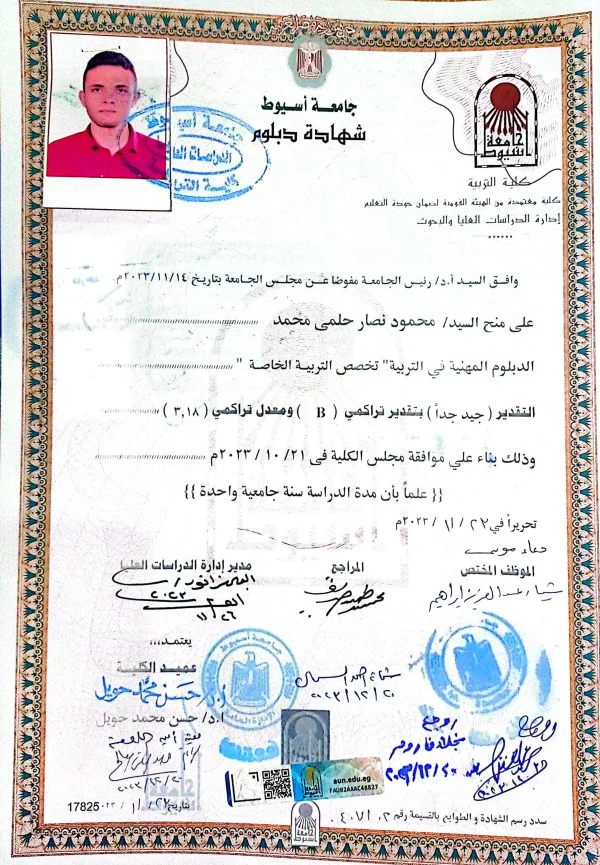 جامعة أسيوط
شهادة دبلوم
جامعة أسيوط
كلية التربية
كلية معتمدة من الهيئة القومية لضمان جودة التعليم
إدارة الدراسات العليا والبحوث
جامعة أسيوط
الدراسات العليا
كلية التربية
وافق السيد أ.د/ رئيس الجامعة مفوضا عن مجلس الجامعة بتاريخ ٢٠٢٣/١١/١٤م
على منح السيد/ محمود نصار حلمى محمد
الدبلوم المهنية في التربية" تخصص التربية الخاصة "
التقدير ( جيد جداً ) بتقدير تراكمي ( B ) ومعدل تراكمي ( ٣,١٨ )
وذلك بناء علي موافقة مجلس الكلية فى ٢١/ ١٠ / ٢٠٢٣م
{{ علماً بأن مدة الدراسة سنة جامعية واحدة }}
تحريراً في ٢٢ / ١١ / ٢٠٢٣م
الموظف المختص
شيماء عبد العزيز ابراهيم
المراجع
مدير إدارة الدراسات العليا
٢٠٢٣
١١/٢٦
يعتمد،،،
عميد الكلية
أ.د. حسن محمد حويل
أ.د/ حسن محمد حويل
٢٠٢٣/١٢/٢٠
روجع
aun.edu.eg
FAU02AAACA8827
17825
سدد رسم الشهادة و الطوابع بالقسيمة رقم